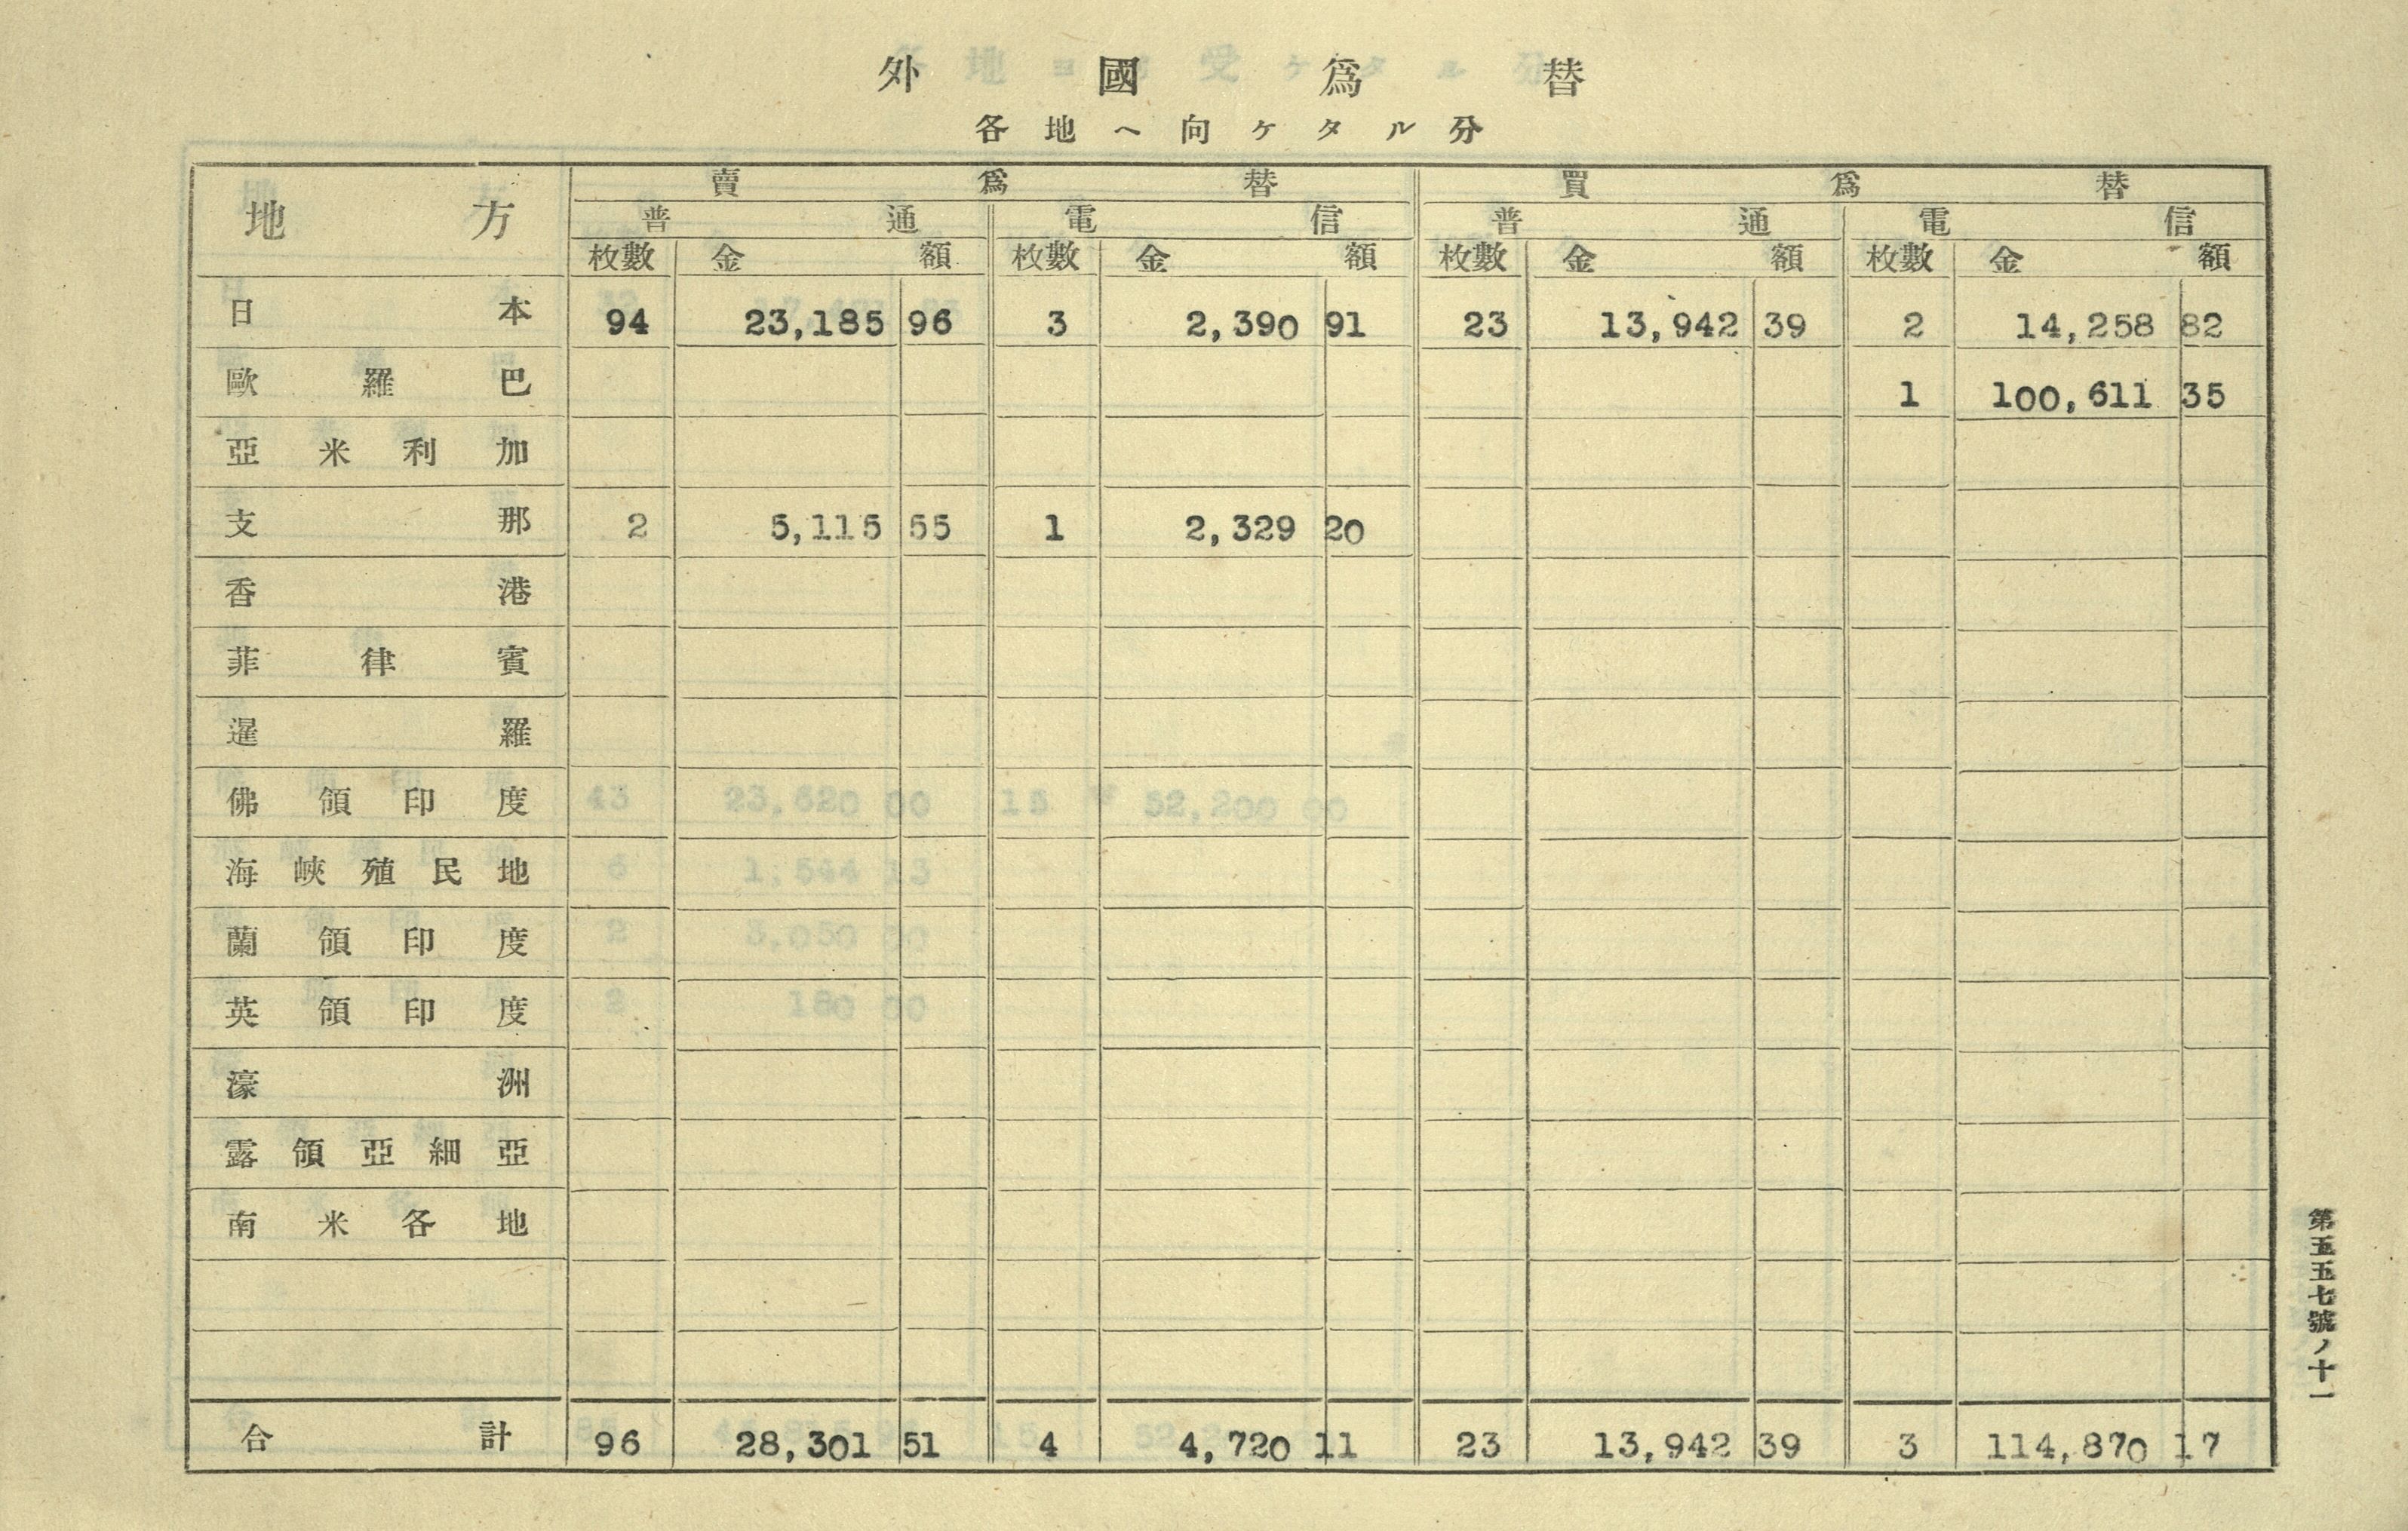 外國為替
各地ヘ向ケタル分
地方 賣為替 買為替
普通 電信 普通 電信
枚數 金額 枚數 金額 枚數 金額 枚數 金額
日本 94 23,185 96 3 2,390 91 23 13,942 39 2 14,258 82
歐羅巴 1 100,611 35
亞米利加
支那 2 5,115 55 1 2,329 20
香港
菲律賓
暹羅
佛領印度
海峽殖民地
蘭領印度
英領印度
濠洲
露領亞細亞
南米各地
合計 96 28,301 51 4 4,720 11 23 13,942 39 3 114,870 17
第五五七號ノ十一